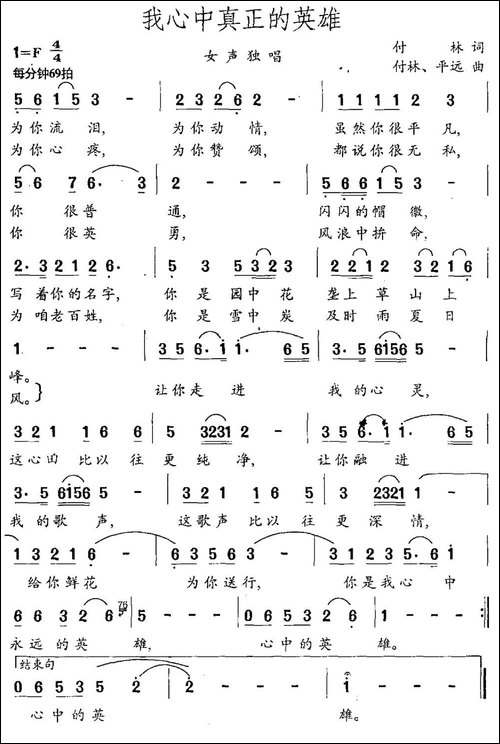 我心中真正的英雄
1=F 4/4
女声独唱
付 林 词
每分钟69拍
付林、平远 曲
5 6 1 5 3 - | 2 3 2 6 2 - | 1 1 1 1 2 3 - |
为你流泪, 为你动情, 虽然你很平凡,
为你心疼, 为你赞颂, 都说你很无私,
5 6 7 6· 3 | 2 - - - | 5 6 6 1 5 3 - |
你很普通, 闪闪的帽徽,
你很英勇, 风浪中拚命,
2· 3 2 1 2 6· | 5 3 5 3 2 3 | 2 2 1 2 3 2 1 6 |
写着你的名字, 你是园中花 垄上草山上
为咱老百姓, 你是雪中炭 及时雨夏日
1 - - - | 3 5 6· 1 1· 6 5 | 3· 5 6 1 5 6 5 - |
峰。
风。} 让你走进 我的心灵,
3 2 2 1 1 6 6 | 5 3 2 3 1 2 - | 3 5 6· 1 1· 6 5 |
这心田比以往更纯净, 让你融进
3· 5 6 1 5 6 5 - | 3 2 2 1 1 6 1 | 5· 3 2 3 2 1 1 -
我的歌声, 这歌声比以往更深情,
1 3 2 1 6 - | 6 3 5 6 3 - | 3 1 2 3 5· 6 1
给你鲜花 为你送行, 你是我心中
6 6 3 2 2 6 | 5 - - - | 0 6 5 3 5 1 | 1 - - - :|
永远的英雄, 心中的英雄。
结束句
0 6 5 3 5 2 | 2 - - - | 1 - - - ‖
心中的英雄。